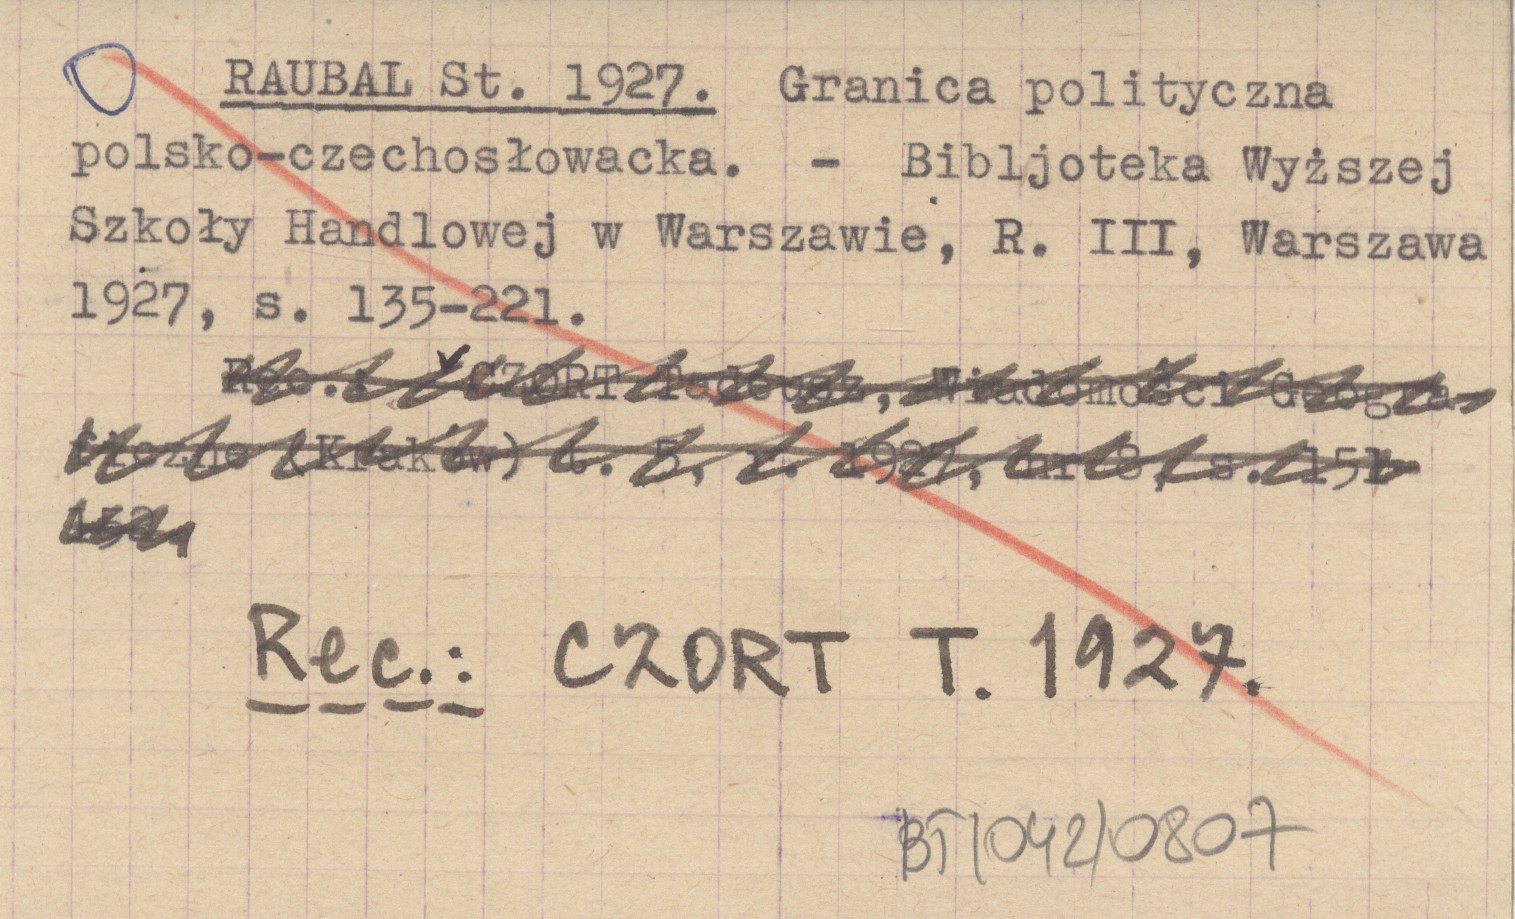 RAUBAL St. 1927. Granica polityczna
polsko-czechosłowacka. - Bibljoteka Wyższej
Szkoły Handlowej w Warszawie, R. III, Warszawa
1927, s. 135-221.
Rec.: CZORT Tadeusz, Wiadomości Geogra-
ficzne (Kraków) t. 5, r. 1927, nr 8, s. 151-
152.
Rec.: CZORT T. 1927.
BT/042/0807